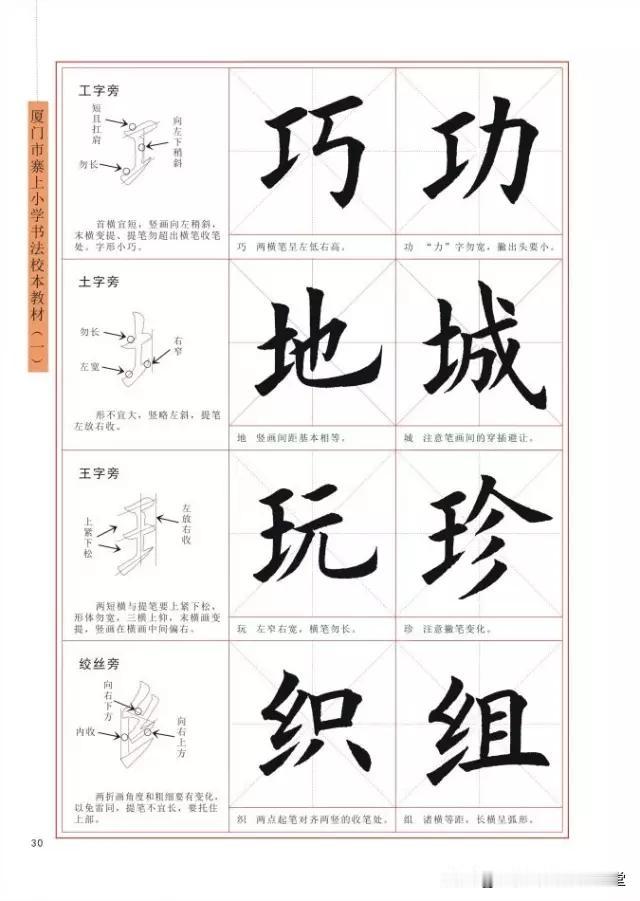 厦门市寨上小学书法校本教材（一）
工字旁
短且扛肩
向左下稍斜
勿长
首横宜短，竖画向左稍斜，
末横变提、提笔勿超出横笔收笔
处。字形小巧。
巧
巧 两横笔呈左低右高。
功
功 “力”字勿宽，撇出头要小。
土字旁
勿长
右窄
左宽
形不宜大，竖略左斜，提笔
左放右收。
地
地 竖画间距基本相等。
城
城 注意笔画间的穿插避让。
王字旁
左放右收
上紧下松
两短横与提笔要上紧下松，
形体勿宽，三横上仰，末横画变
提，竖画在横画中间偏右。
玩
玩 左窄右宽，横笔勿长。
珍
珍 注意撇笔变化。
绞丝旁
向右下方
内收
向右上方
两折画角度和粗细要有变化，
以免雷同，提笔不宜长，要托住
上部。
织
织 两点起笔对齐两竖的收笔处。
组
组 诸横等距，长横呈弧形。
30